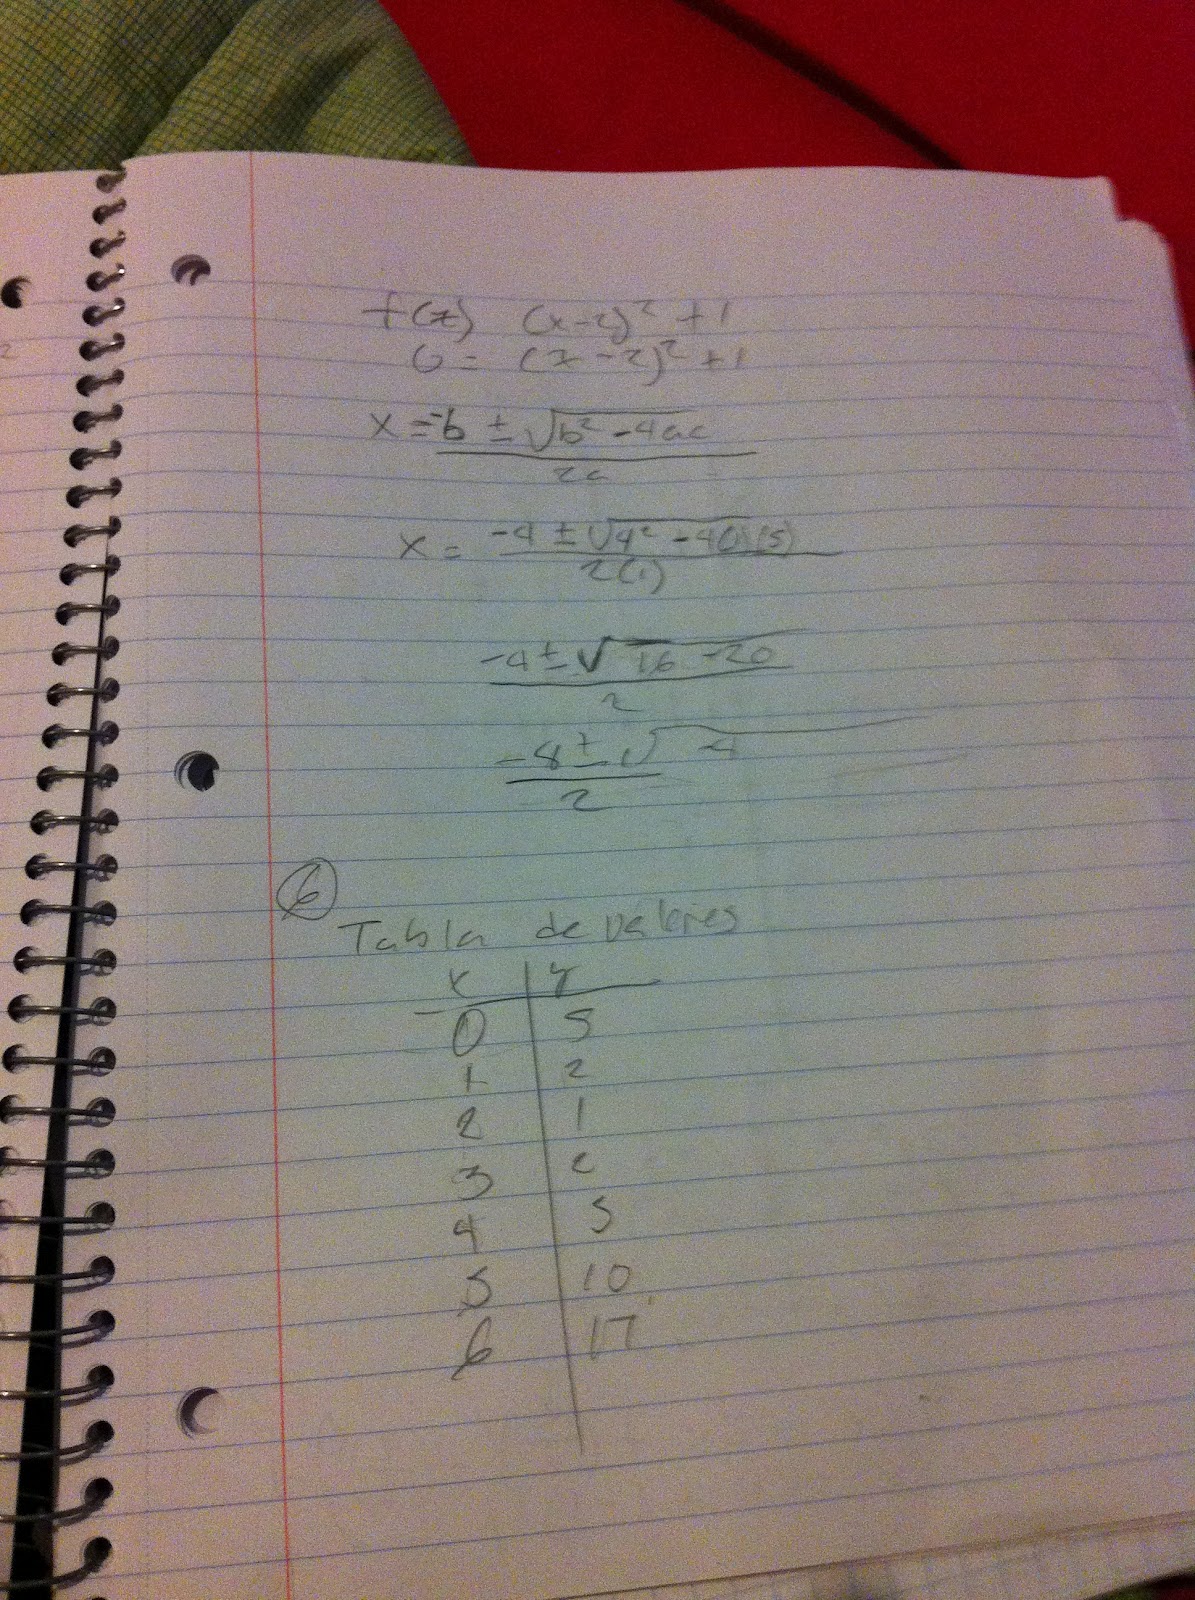 f(x) (x-2)² +1
0 = (x-2)² +1
x = -b ± √b² -4ac
2a
x = -4 ± √4² -4(1)(5)
2(1)
-4 ± √16 -20
2
-8 ± √ -4
2
6
Tabla de valores
x y
0 5
1 2
2 1
3 2
4 5
5 10
6 17